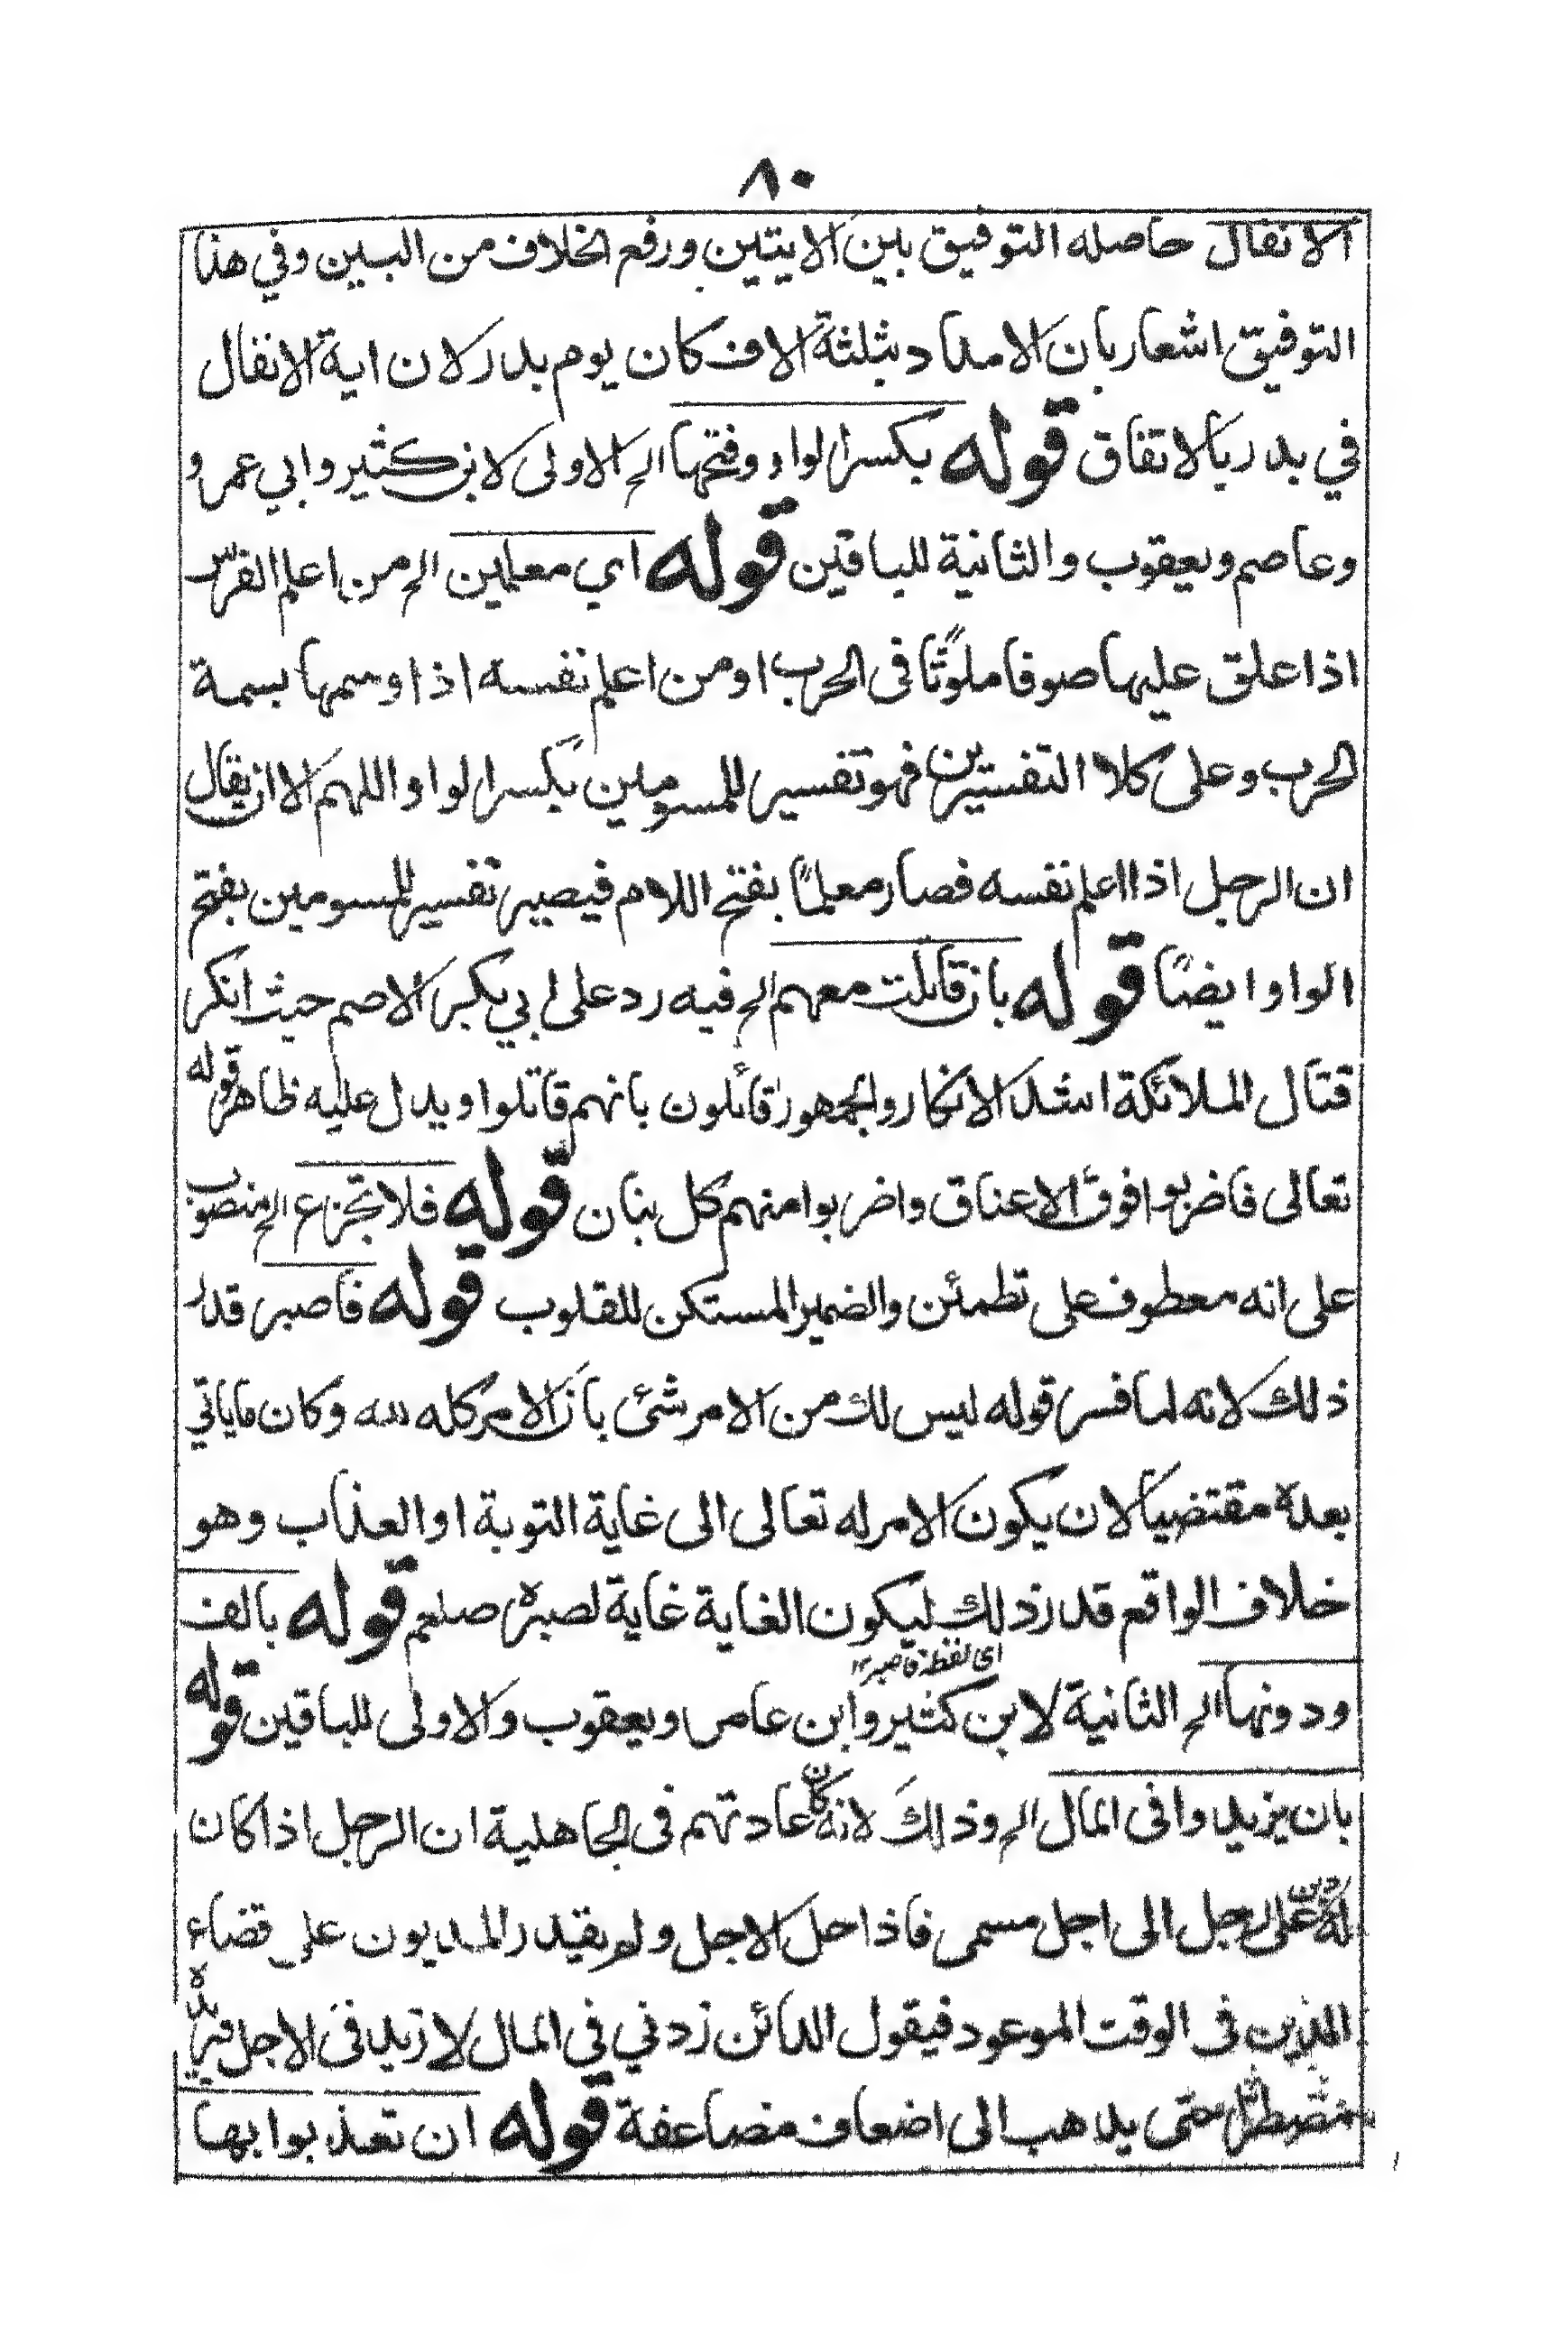 ٨٠
الانفال حاصله التوفيق بين الايتين ورفع الخلاف من البين وفي هذا
التوفيق اشعار بان الامداد بثلثة الاف كان يوم بدر لان اية الانفال
في بدر بالاتفاق قوله بكسر الواو وفتحها الخ الاولى لابن كثير وابي عمرو
وعاصم ويعقوب والثانية للباقين قوله اي معلمين الخ من اعلم الفرس
اذا علق عليها صوفا ملوّنًا في الحرب او من اعلم نفسه اذا وسمها بسمة
الحرب وعلى كلا التفسيرين فهو تفسير للمسومين بكسر الواو اللهم الا ان يقال
ان الرجل اذا اعلم نفسه فصار معلمًا بفتح اللام فيصير تفسير للمسومين بفتح
الواو ايضًا قوله بان قاتلت معهم الخ فيه رد على ابي بكر الاصم حيث انكر
قتال الملائكة اشد الانكار والجمهور قائلون بانهم قاتلوا ويدل عليه ظاهر قوله
تعالى فاضربوا فوق الاعناق واضربوا منهم كل بنان قوله فلا تجزع الخ منصوب
على انه معطوف على تطمئن والضمير المستكن للقلوب قوله فاصبر قدر
ذلك لانه لما فسر قوله ليس لك من الامر شئ بان الامر كله لله وكان ما ياتي
بعده مقتضيا لان يكون الامر له تعالى الى غاية التوبة او العذاب وهو
خلاف الواقع قدر ذلك ليكون الغاية غاية لصبره صلعم قوله بالف
اى لفظ فاصبر ١٢
ودونها الخ الثانية لابن كثير وابن عامر ويعقوب والاولى للباقين قوله
بان يزيدوا في المال الخ وذلك لانه كان عادتهم في الجاهلية ان الرجل اذا كان
له دين على رجل الى اجل مسمى فاذا حل الاجل ولم يقدر المديون على قضاء
الدين في الوقت الموعود فيقول الدائن زدني في المال لازيد في الاجل فيزيده
حتى يذهب الى اضعاف مضاعفة قوله ان تعذبوا بها